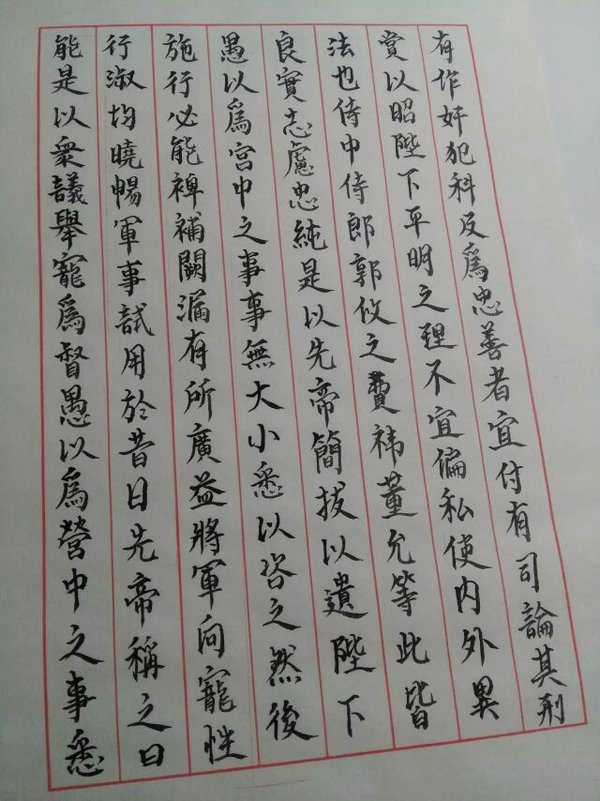 有作奸犯科及爲忠善者宜付有司論其刑
賞以昭陛下平明之理不宜偏私使內外異
法也侍中侍郎郭攸之費禕董允等此皆
良實志慮忠純是以先帝簡拔以遺陛下
愚以爲宮中之事事無大小悉以咨之然後
施行必能裨補闕漏有所廣益將軍向寵性
行淑均曉暢軍事試用於昔日先帝稱之曰
能是以衆議舉寵爲督愚以爲營中之事悉